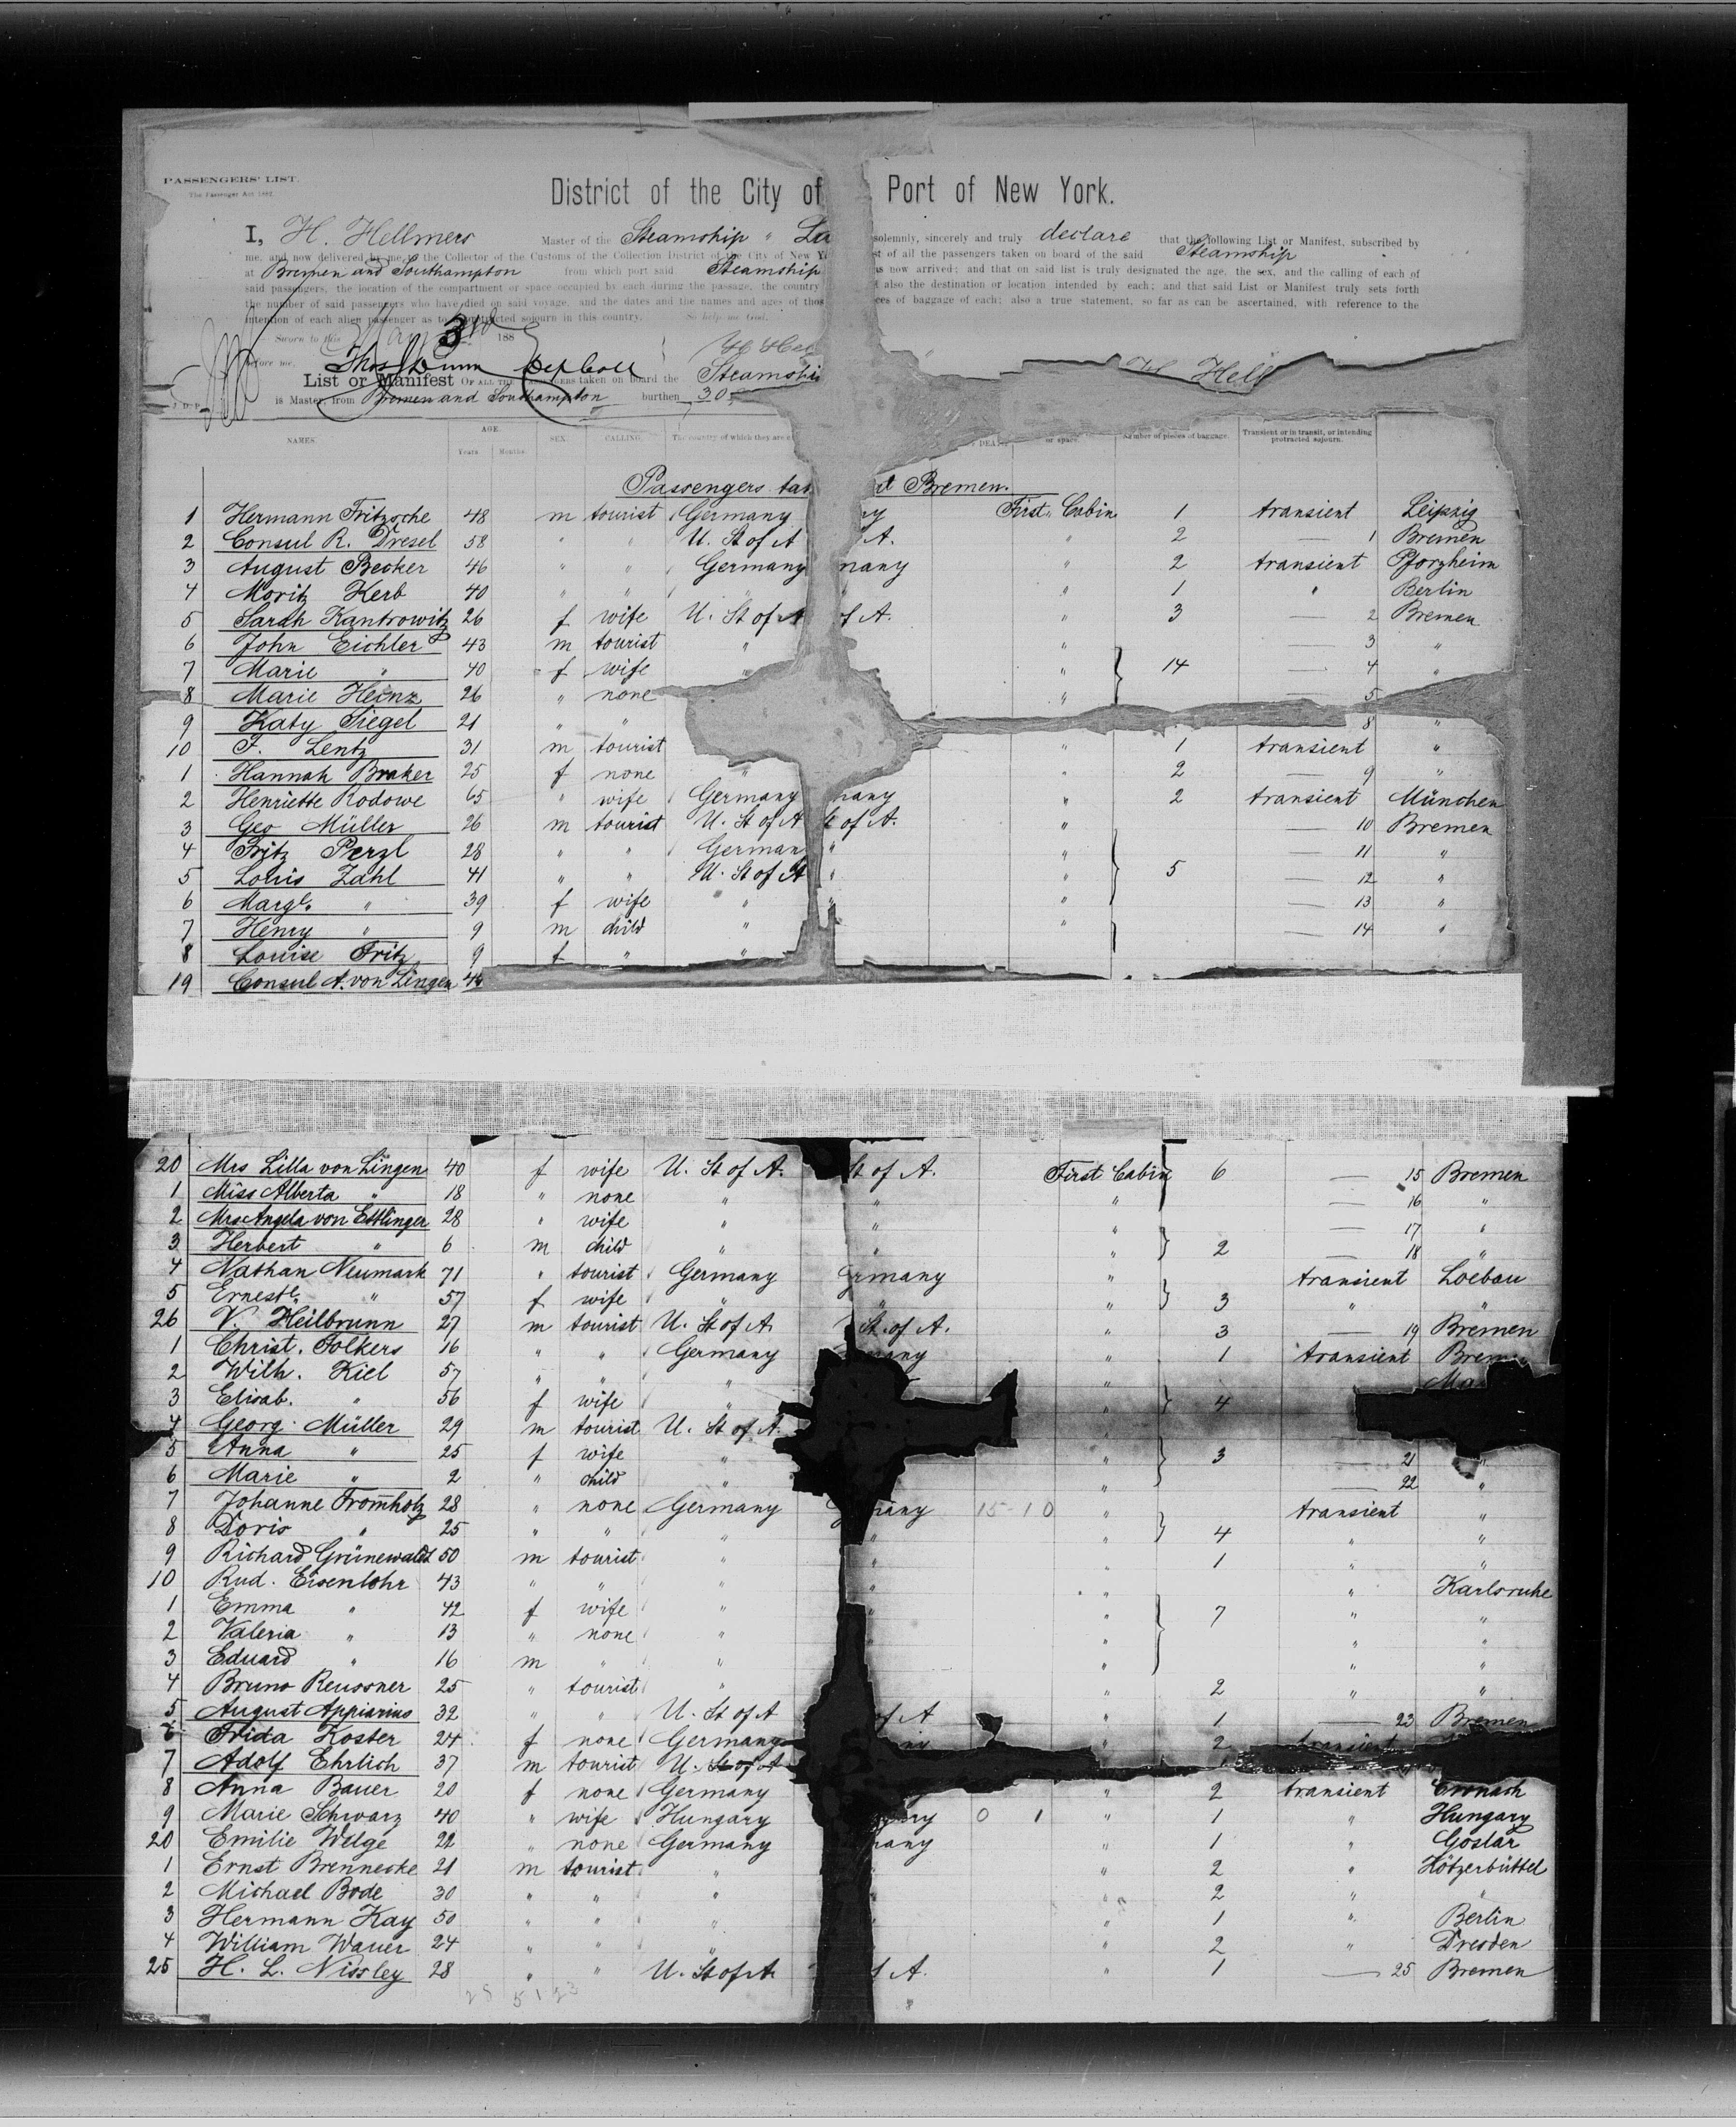 PASSENGERS' LIST.
The Passenger Act 1882.
District of the City of Port of New York.
I, H. Hellmers Master of the Steamship " La solemnly, sincerely and truly declare that the following List or Manifest, subscribed by
me, and now delivered by me to the Collector of the Customs of the Collection District of the City of New Y st of all the passengers taken on board of the said Steamship
at Bremen and Southampton from which port said Steamship as now arrived; and that on said list is truly designated the age, the sex, and the calling of each of
said passengers, the location of the compartment or space occupied by each during the passage, the country also the destination or location intended by each; and that said List or Manifest truly sets forth
the number of said passengers who have died on said voyage, and the dates and the names and ages of thos ces of baggage of each; also a true statement, so far as can be ascertained, with reference to the
intention of each alien passenger as to a protracted sojourn in this country. So help me God.
Sworn to this May 3rd 188
before me H Hel
List or Manifest OF ALL THE PASSENGERS taken on board the Steamshi H. Hell
is Master, from Bremen and Southampton burthen 30
NAMES. AGE. Years Months. SEX. CALLING. The country of which they are DEATH or space. Number of pieces of baggage. Transient or in transit, or intending protracted sojourn.
Passengers tak Bremen.
1 Hermann Fritzsche 48 m tourist Germany ny First Cabin 1 transient Leipzig
2 Consul R. Dresel 58 " " U. St of A A. " 2 — 1 Bremen
3 August Becker 46 " " Germany many " 2 transient Pforzheim
4 Moritz Kerb 40 " " " " " 1 " Berlin
5 Sarah Kantrowitz 26 f wife U. St of A f A. " 3 — 2 Bremen
6 John Eichler 43 m tourist " " — 3 "
7 Marie " 40 f wife " " 14 — 4 "
8 Marie Heinz 26 " none " — 5
9 Katy Siegel 21 " " 8 "
10 F. Lentz 31 m tourist " 1 transient "
1 Hannah Braker 25 f none " " 2 — 9 "
2 Henriette Rodowe 65 " wife Germany many " 2 transient München
3 Geo Müller 26 m tourist U. St of A t of A. " — 10 Bremen
4 Fritz Perzl 28 " " German " " — 11 "
5 Louis Zahl 41 " " U. St of A " " 5 — 12 "
6 Margt. " 39 f wife " " " — 13 "
7 Henry " 9 m child " " — 14 "
8 Louise Fritz 9 f " "
19 Consul A. von Lingen
20 Mrs Lilla von Lingen 40 f wife U. St of A. St of A. First Cabin 6 — 15 Bremen
1 Miss Alberta " 18 " none " " " — 16 "
2 Mrs Angela von Ettlinger 28 " wife " " " — 17 "
3 Herbert " 6 m child " " " 2 — 18 "
4 Nathan Neumark 71 " tourist Germany ermany " transient Loebau
5 Erneste. " 57 f wife " " " 3 " "
26 V. Heilbrunn 27 m tourist U. St of A. St. of A. " 3 — 19 Bremen
1 Christ. Folkers 16 " " Germany many " 1 transient Brem
2 Wilh. Kiel 57 " " " " Ma
3 Elisab. " 56 f wife " " 4
4 Georg Müller 29 m tourist U. St of A.
5 Anna " 25 f wife " " 3 — 21 "
6 Marie " 2 " child " " — 22 "
7 Johanne Fromholz 28 " none Germany many 15-10 " transient "
8 Doris " 25 " " " " " 4 " "
9 Richard Grünewald 50 m tourist " " " 1 " "
10 Rud. Eisenlohr 43 " " " " " " Karlsruhe
1 Emma " 42 f wife " " " 7 " "
2 Valeria " 13 " none " " " " "
3 Eduard " 16 m " " " " "
4 Bruno Reussner 25 " tourist " " 2 " "
5 August Appiarius 32 " " U. St of A of A " 1 — 23 Bremen
6 Frida Koster 24 f none Germany ny " 2 transient
7 Adolf Ehrlich 37 m tourist U. St of A
8 Anna Bauer 20 f none Germany " 2 transient Cronach
9 Marie Schwarz 40 " wife Hungary ry 0 1 " 1 " Hungary
20 Emilie Welge 22 " none Germany many " 1 " Goslar
1 Ernst Brennecke 21 m tourist " " 2 " Hötzerbüttel
2 Michael Bode 30 " " " " 2 " "
3 Hermann Kay 50 " " " " 1 " Berlin
4 William Wauer 24 " " " " 2 " Dresden
25 H. L. Nissley 28 " " U. St of A. A. " 1 — 25 Bremen